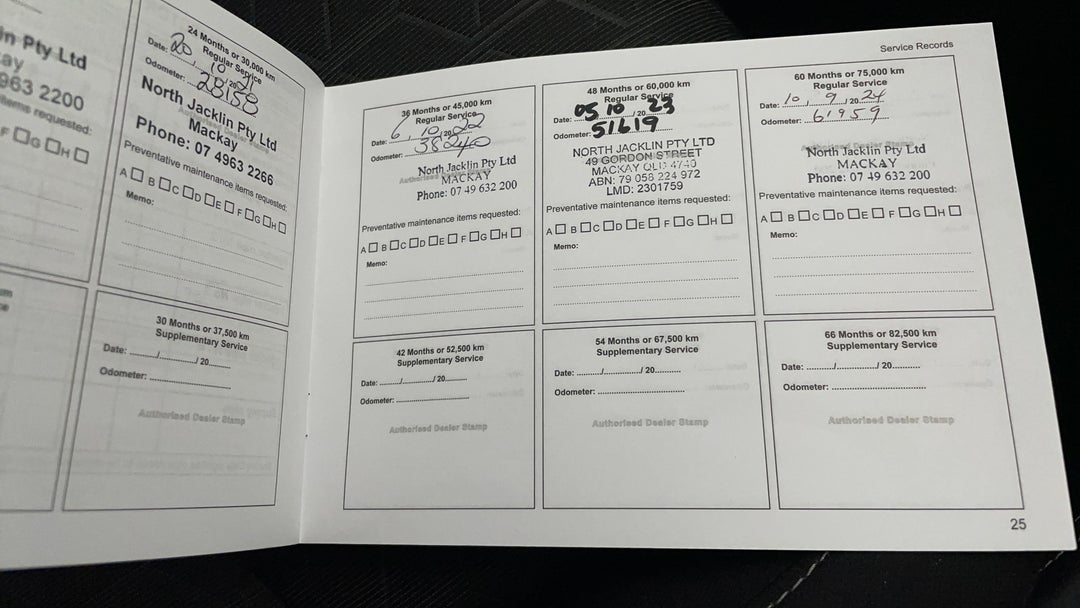 in Pty Ltd
ay
963 2200
items requested:
F □G □H □
24 Months or 30,000 km
Regular Service
Date: 20 / 10 / 2021
Odometer: 28158
North Jacklin Pty Ltd
Mackay
Phone: 07 4963 2266
Preventative maintenance items requested:
A □ B □C □D □E □ F □G □H □
Memo:
30 Months or 37,500 km
Supplementary Service
Date: ......../............/ 20........
Odometer: ........................
Authorised Dealer Stamp
Service Records
36 Months or 45,000 km
Regular Service
Date: 6 / 10 / 2022
Odometer: 38240
North Jacklin Pty Ltd
MACKAY
Phone: 07 49 632 200
Preventative maintenance items requested:
A □ B □C □D □E □ F □G □H □
Memo:
42 Months or 52,500 km
Supplementary Service
Date: ......../............/ 20........
Odometer: ........................
Authorised Dealer Stamp
48 Months or 60,000 km
Regular Service
Date: 05 10 / 20 23
Odometer: 51619
NORTH JACKLIN PTY LTD
49 GORDON STREET
MACKAY QLD 4740
ABN: 79 058 224 972
LMD: 2301759
Preventative maintenance items requested:
A □ B □C □D □E □ F □G □H □
Memo:
54 Months or 67,500 km
Supplementary Service
Date: ......../............/ 20........
Odometer: ........................
Authorised Dealer Stamp
60 Months or 75,000 km
Regular Service
Date: 10 / 9 / 20 24
Odometer: 61959
North Jacklin Pty Ltd
MACKAY
Phone: 07 49 632 200
Preventative maintenance items requested:
A □ B □C □D □E □ F □G □H □
Memo:
66 Months or 82,500 km
Supplementary Service
Date: ......../............/ 20........
Odometer: ........................
Authorised Dealer Stamp
25